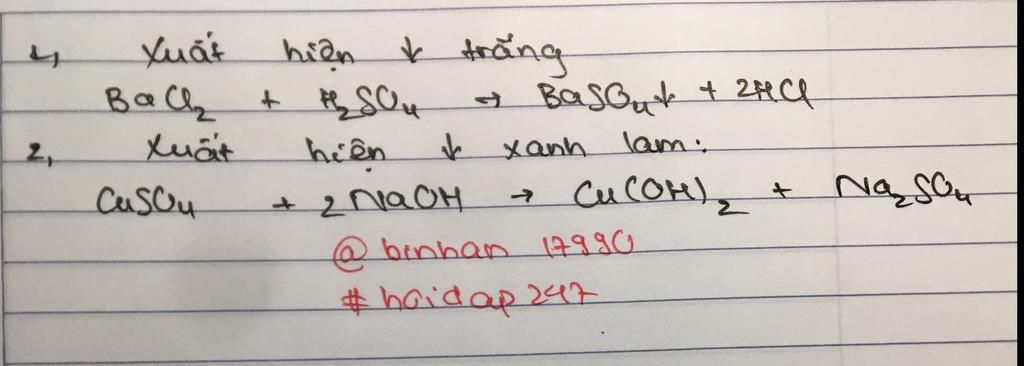 1, Xuất hiện ↓ trắng
BaCl₂ + H₂SO₄ → BaSO₄↓ + 2HCl
2, Xuất hiện ↓ xanh lam:
CuSO₄ + 2NaOH → Cu(OH)₂ + Na₂SO₄
@binhan 17990
#hoidap247